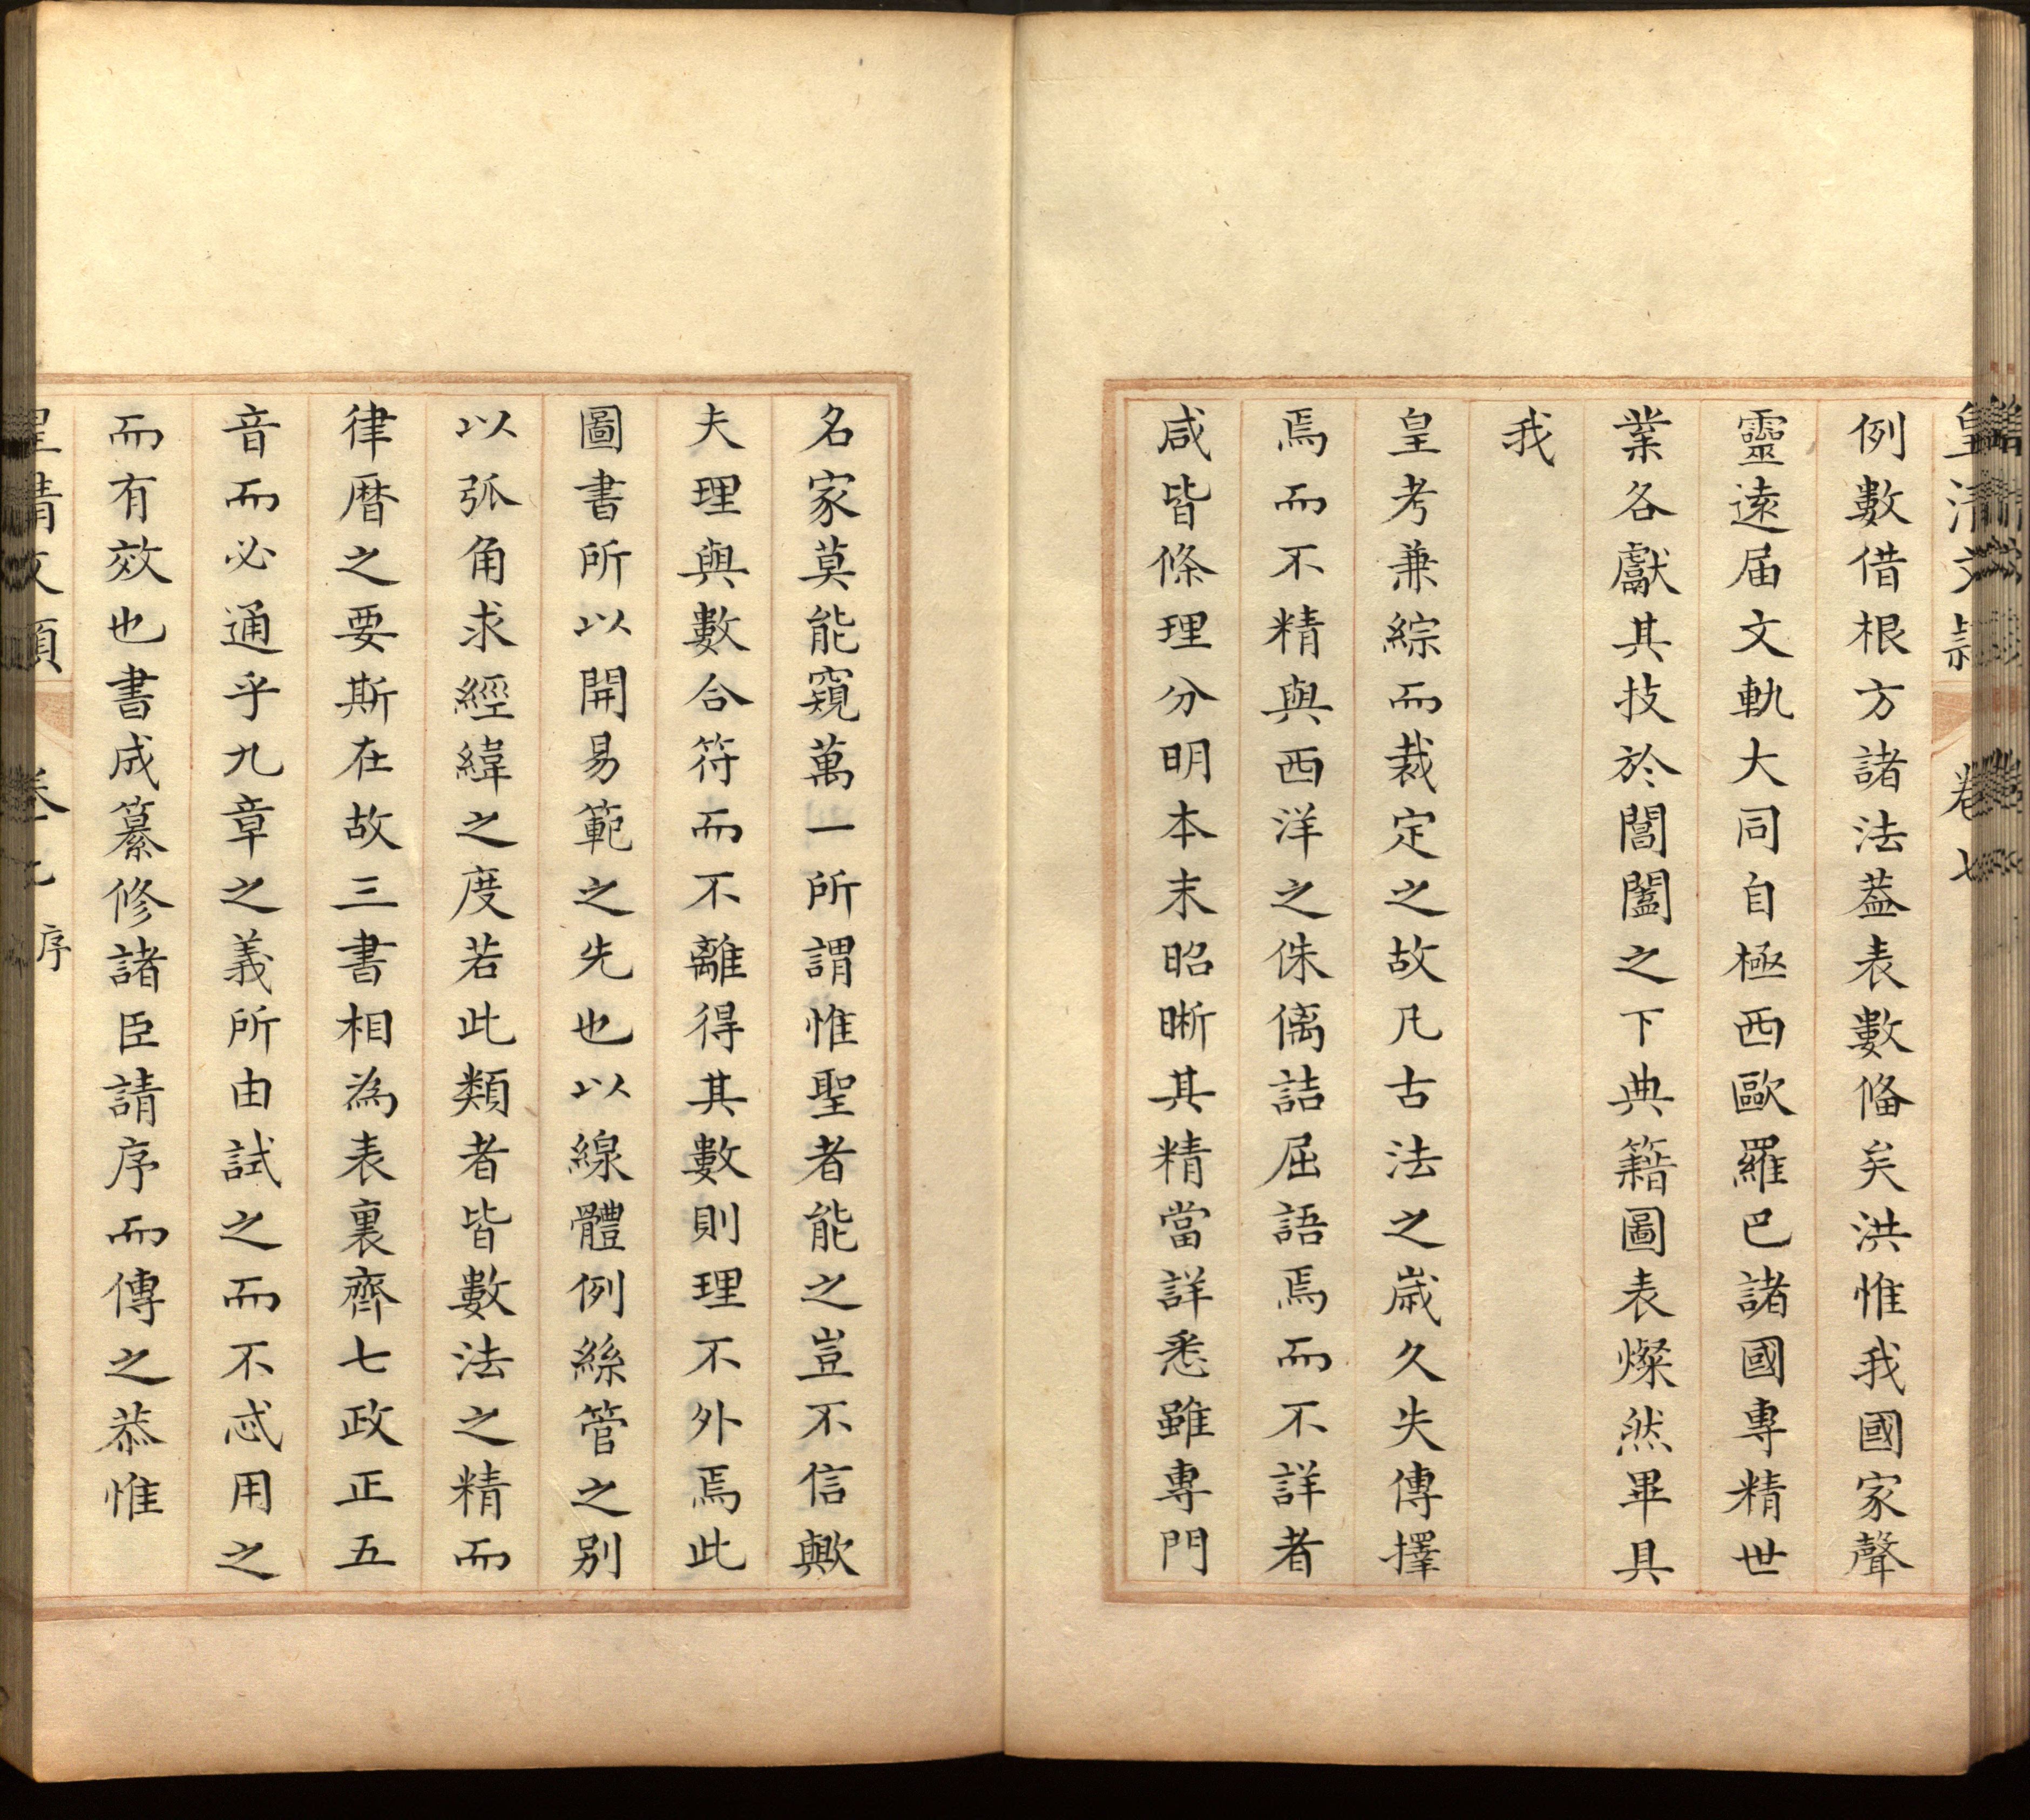 皇清文頴 卷七
例數借根方諸法葢表數俻矣洪惟我國家聲
靈遠届文軌大同自極西歐羅巴諸國專精世
業各獻其技於閶闔之下典籍圖表燦然畢具
我
皇考兼綜而裁定之故凡古法之嵗久失傳擇
焉而不精與西洋之侏㒧詰屈語焉而不詳者
咸皆條理分明本末昭晰其精當詳悉雖專門
名家莫能窺萬一所謂惟聖者能之豈不信歟
夫理與數合符而不離得其數則理不外焉此
圖書所以開易範之先也以線體例絲管之别
以弧角求經緯之度若此類者皆數法之精而
律曆之要斯在故三書相為表裏齊七政正五
音而必通乎九章之義所由試之而不忒用之
而有效也書成纂修諸臣請序而傳之恭惟
皇清文頴 卷七 序